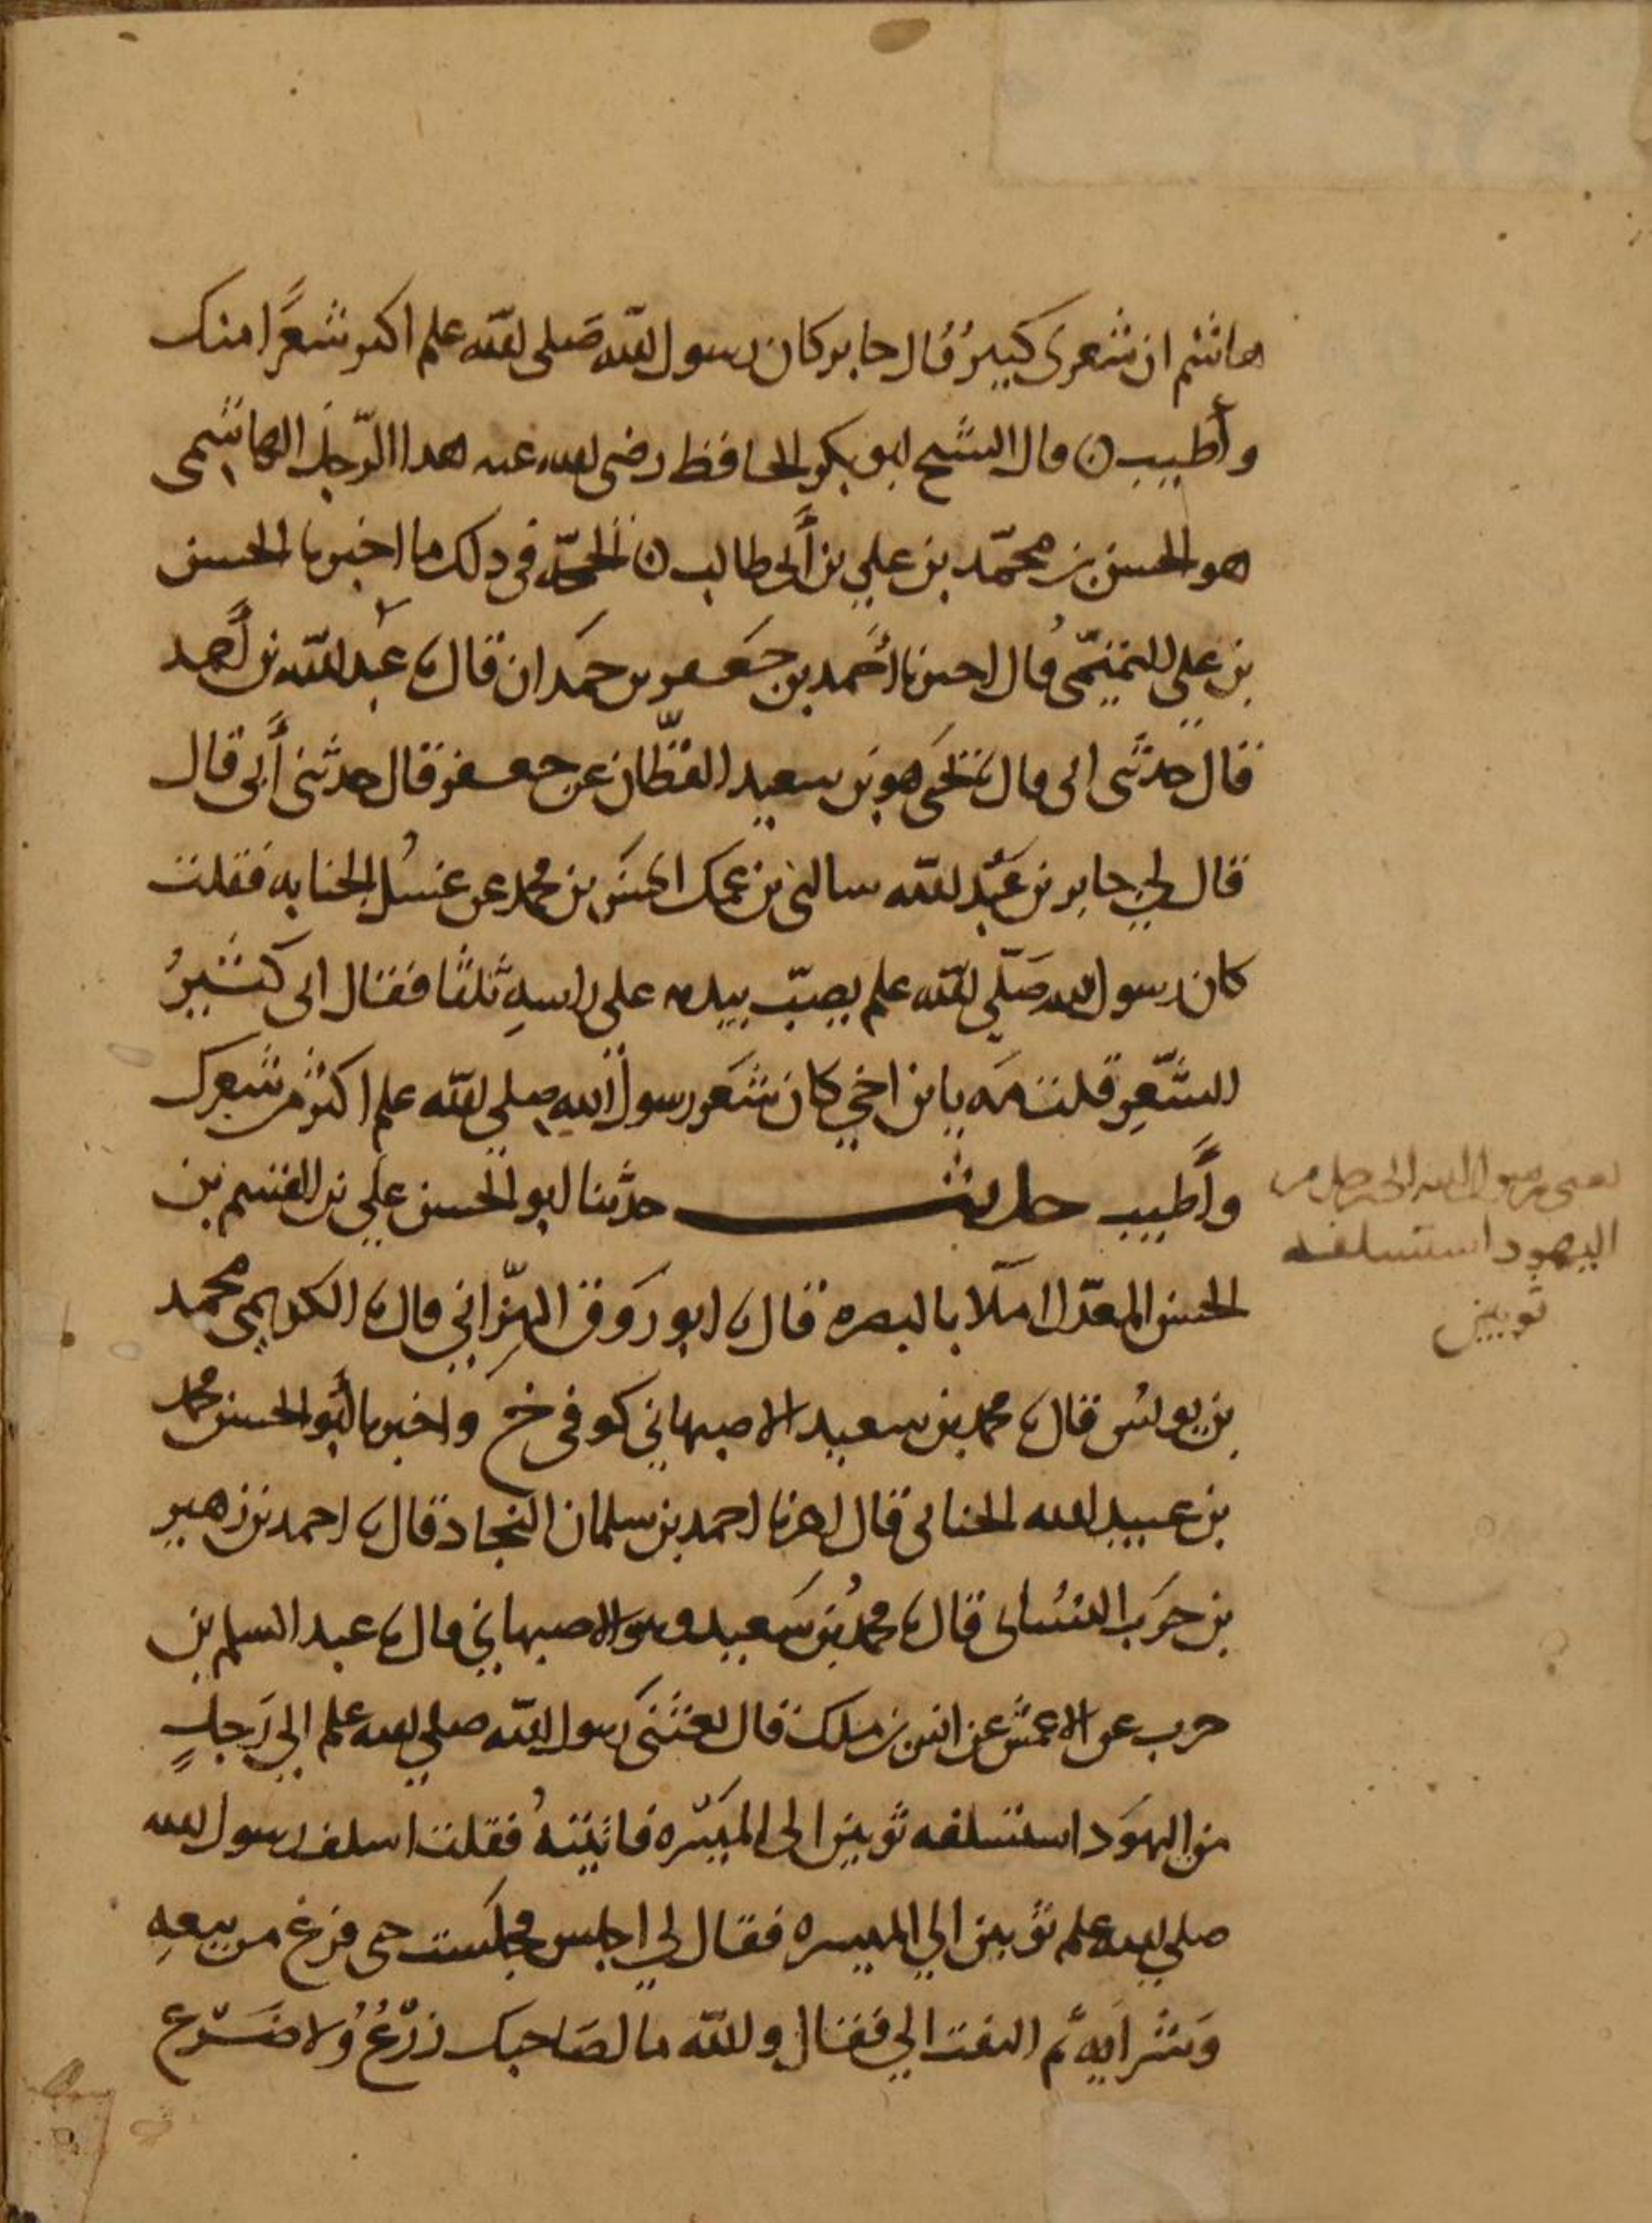 هاشم ان شعرى كبيرٌ قال جابر كان رسول الله صَلى الله علم اكثر شعرًا منك
وأطيب ن قال الشيخ ابو بكر الحافظ رضى الله عنه هذا الرّجل الهاشمى
هو الحسن بن محمّد بن علي بن أبى طالب ن الحجّة في ذلك ما اخبرنا الحسن
بن علي التميمّى قال اخبرنا أحمد بن جعفر بن حمَدان قال نا عبد الله بن أحمد
قال حدثنى ابى قال نا يحيَى هو بن سعيد القطّان عن جعفر قال حدثنى أبى قال
قال لي جابر بن عَبد الله سالنى بن عمك الحسَن بن محمد عن غسُل الجنابه فقلت
كان رسول الله صَلّي الله علم يصبّ بيده على راسهِ ثلثًا فقال انى كثيرُ
الشَّعرِ قلت مَه يا بن اخي كان شعَر رسول الله صلي الله علم اكثر من شعرك
وأطيب حديث حدثنا ابو الحسن علي بن القسم بن
الحسن المعدّل املآ بالبصره قال نا ابو رَوق الهِزّاني قال نا الكديمى محمد
بن يونس قال نا محمد بن سعيد الاصبهاني كوفى ح واخبرنا أبو الحسن محمد
بن عبيد الله الحنائى قال اخبرنا احمد بن سلمان النجاد قال نا احمد بن زهير
بن حرَب النسُائى قال نا محمدُ بن سَعيد وهو الاصبهاني قال نا عبد السلم بن
حرب عن الاعمش عن انس بن ملك قال بعثنى رسول الله صلي الله علم الي رَجلٍ
من اليهوَد استسلفه ثوبين الى الميَسَره فاتيتهُ فقلت اسلف رسول الله
صلي الله علم ثوبين الي الميسره فقال لي اجلس فجلَست حتى فرغ من بيعهِ
وَشرايه ثم التفت الي فقال والله ما لصَاحبك زرْعُ ولا ضَرْع
بعثنى رسول الله الى رجل من
اليهود استسلفه
ثوبين